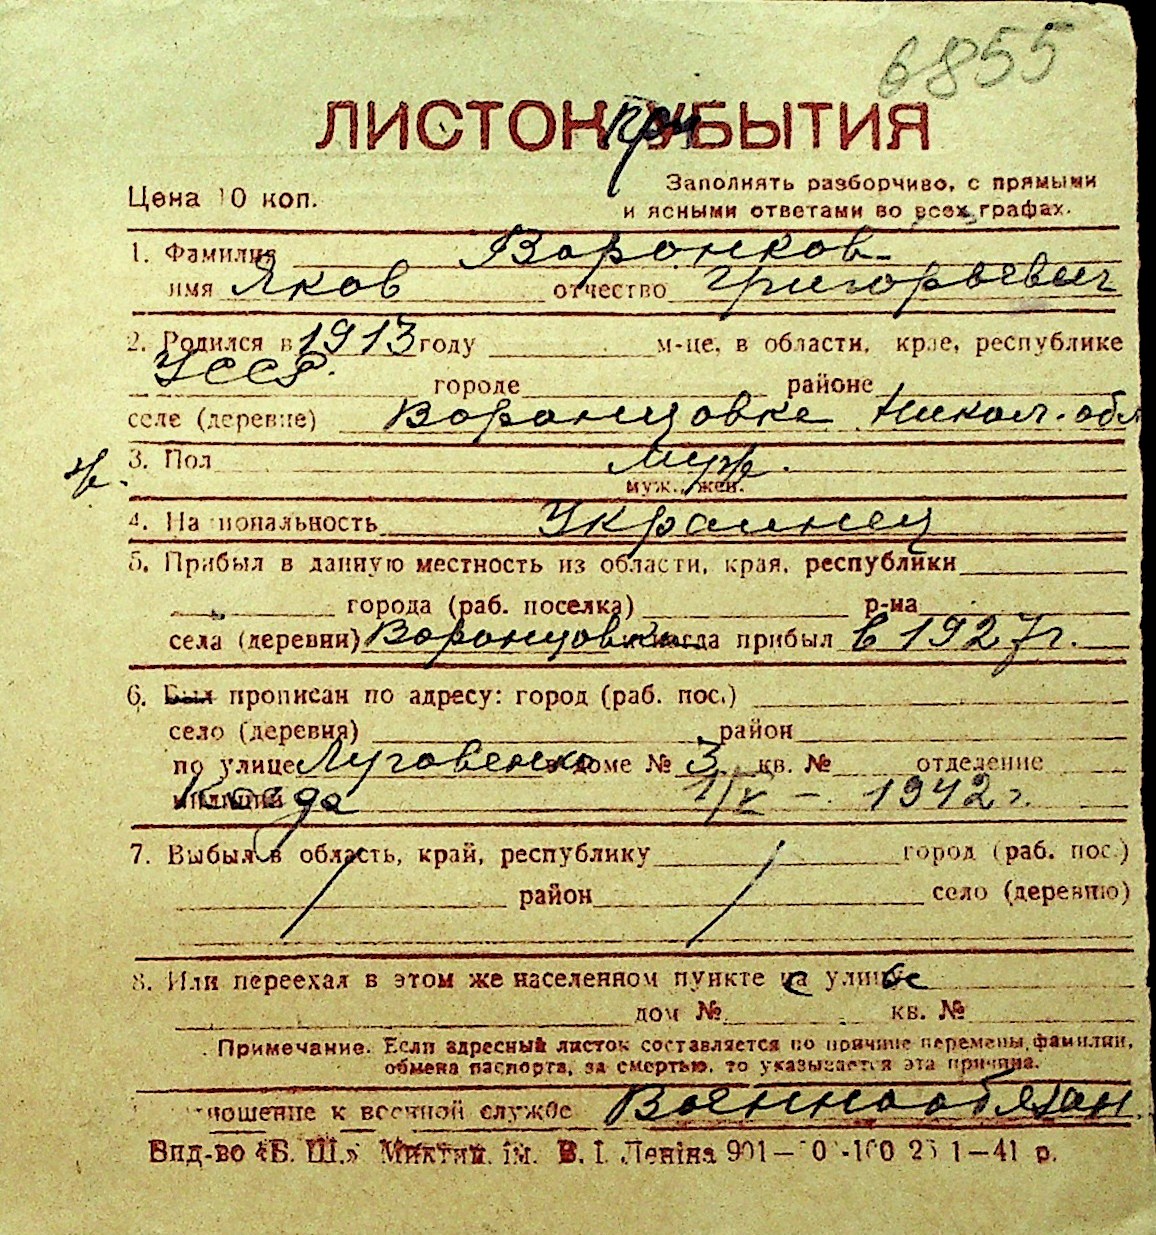 6855
ЛИСТОК при УБЫТИЯ
Цена 10 коп.
Заполнять разборчиво, с прямыми
и ясными ответами во всех графах.
1. Фамилия Воронков
имя Яков отчество Григорьевич
2. Родился в 1913 году м-це, в области, крае, республике
УССР. городе районе
селе (деревне) Воронцовке Никол. обл
3. Пол муж.
муж., жен.
4. Национальность Украинец
5. Прибыл в данную местность из области, края, республики
города (раб. поселка) р-на
села (деревни) Воронцовка когда прибыл в 1927 г.
6. Был прописан по адресу: город (раб. пос.)
село (деревня) район
по улице Луговенко в доме № 3 кв. № отделение
милиции Когда 1/V – 1942 г.
7. Выбыл в область, край, республику город (раб. пос.)
район село (деревню)
8. Или переехал в этом же населенном пункте на улицу
дом № кв. №
Примечание. Если адресный листок составляется по причине перемены фамилии,
обмена паспорта, за смертью, то указывается эта причина.
отношение к военной службе Военнообязан.
Вид-во «Б. Ш.» ім. В. І. Леніна 1—41 р.